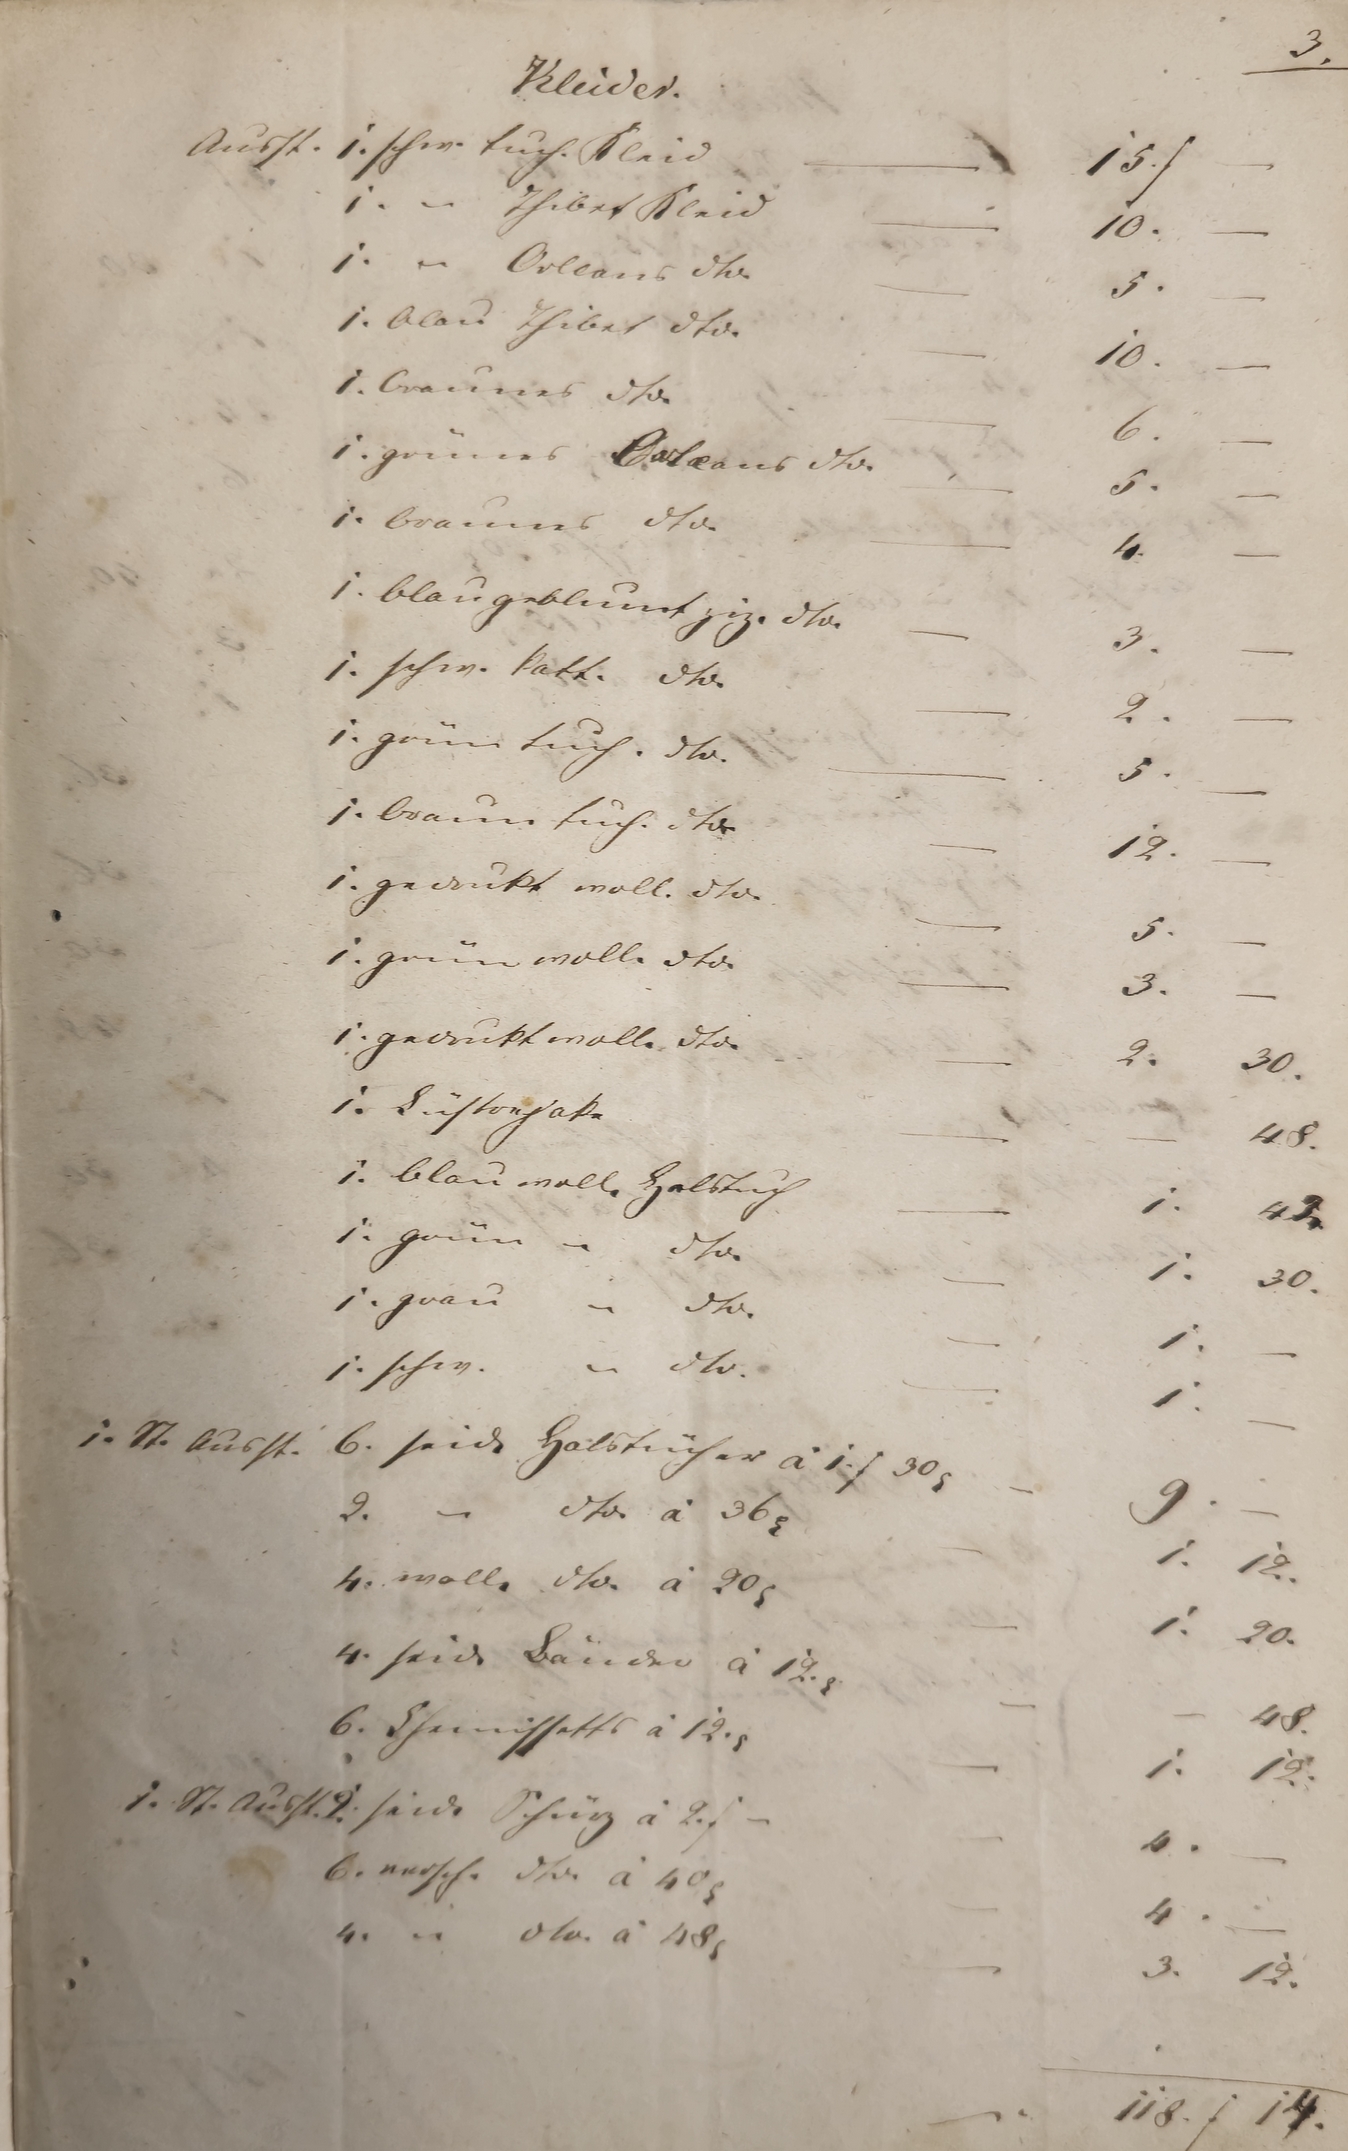 3.
Kleider.
Ausst. 1. schw. tuch. Kleid — 15 f —
1. " Thibet Kleid — 10. —
1. " Orleans dto. — 5. —
1. blau Thibet dto. — 10. —
1. braunes dto. — 6. —
1. grünes Orleans dto. — 5. —
1. braunes dto. — 4. —
1. blau geblumt ziz. dto. — 3. —
1. schw. katt. dto. — 2. —
1. grün tuch. dto. — 5. —
1. braun tuch. dto. — 12. —
1. gedrukt woll. dto. — 5. —
1. grün woll. dto. — 3. —
1. gedrukt woll. dto. — 2. 30.
1. Lüstrejake — — 48.
1. blau woll. Halstuch — 1. 42.
1. grün " dto. — 1. 30.
1. grau " dto. — 1. —
1. schw. " dto. — 1. —
1. St. Ausst. 6. seide Halstücher à 1 f 30 x — 9. —
2. " dto. à 36 x — 1. 12.
4. woll. dto. à 20 x — 1. 20.
4. seide Bänder à 12. x — — 48.
6. Chemissetts à 12. x — 1. 12.
1. St. Ausst. 2. seide Schürz à 2. f — — 4. —
6. versch. dto. à 40 x — 4. —
4. " dto. à 48 x — 3. 12.
— 118. f 14.